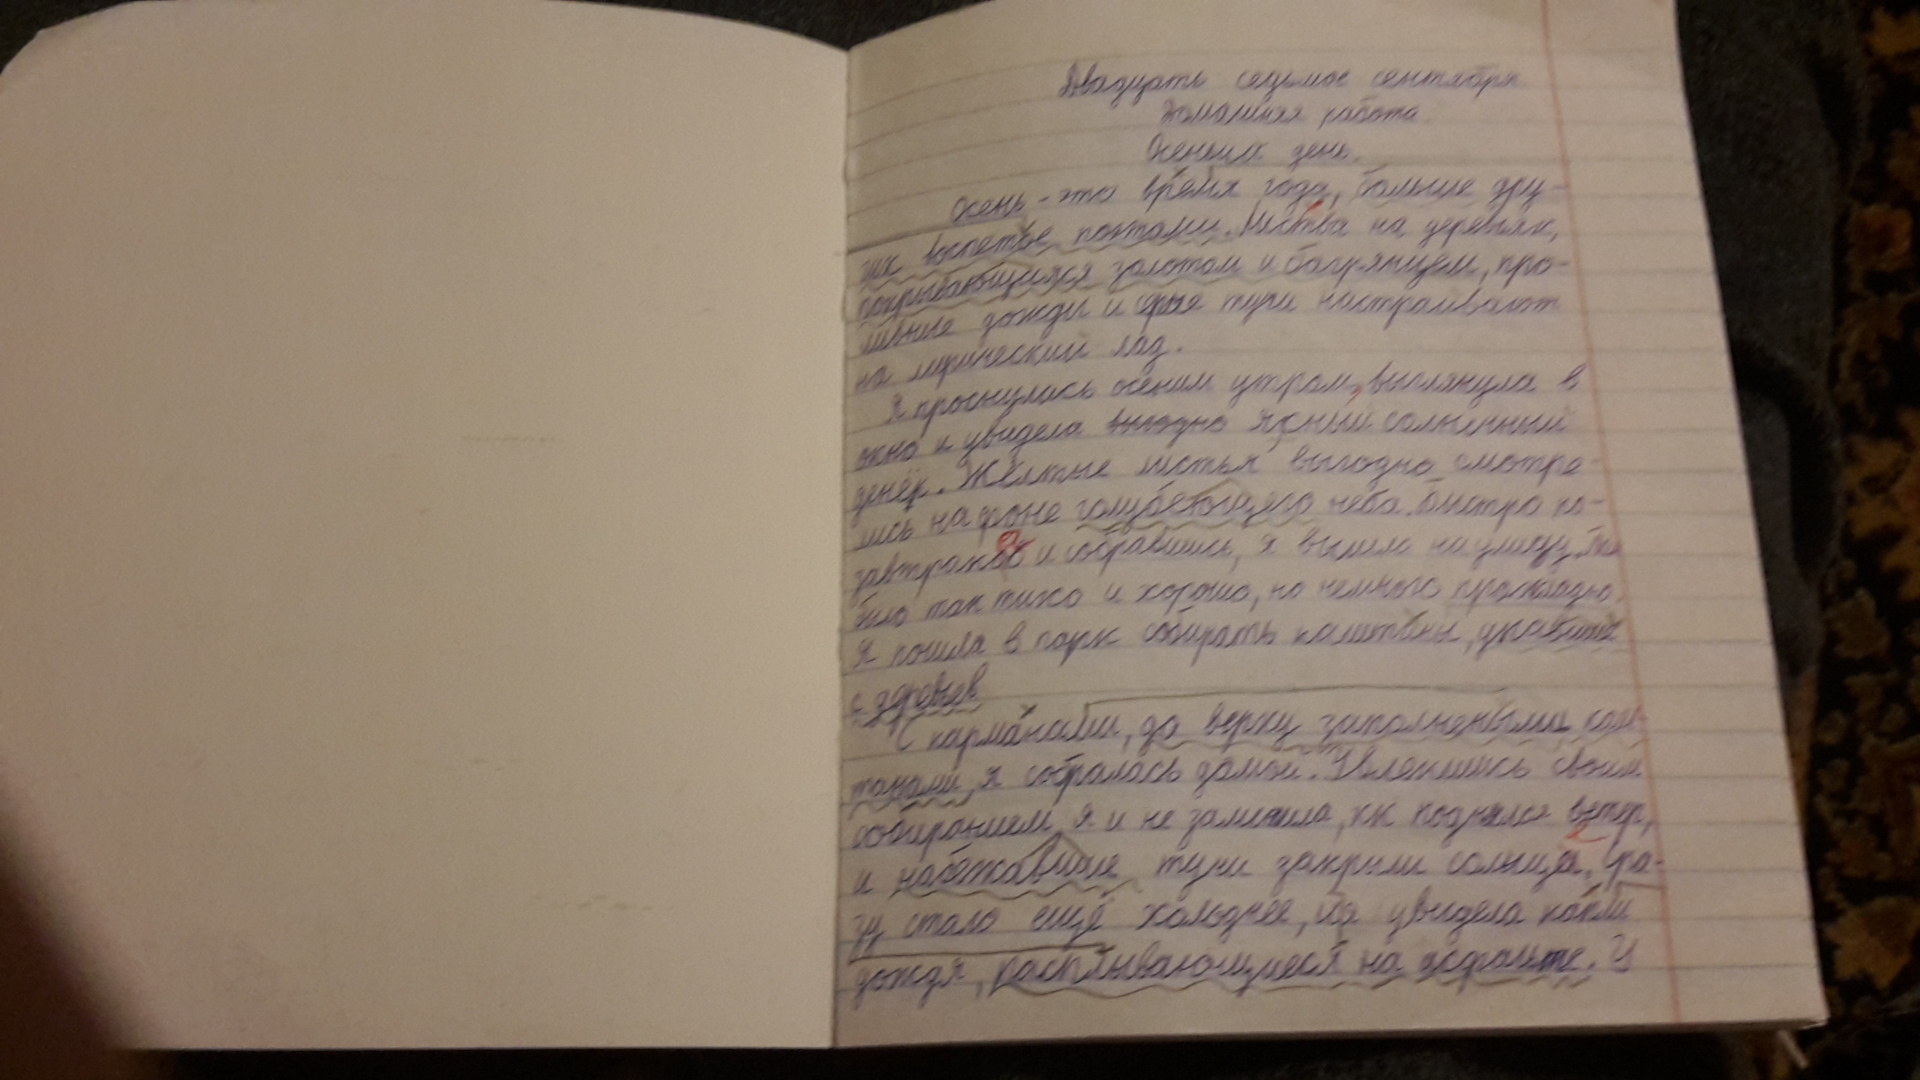 Двадцать седьмое сентября.
Домашняя работа.
Осенний день.
Осень - это время года, больше дру-
гих воспетое поэтами. Листва на деревьях,
покрывающаяся золотом и багрянцем, про-
ливные дожди и серые тучи настраивают
на лирический лад.
Я проснулась осеним утром, выглянула в
окно и увидела выгодно ясный солнечный
денёк. Жёлтые листья выгодно смотре-
лись на фоне голубеющего неба. Быстро по-
завтракав и собравшись, я вышла на улицу.
было так тихо и хорошо, но немного прохладно.
Я пошла в парк собирать каштаны, упавшие
с деревьев
С карманами, до верху заполненными каш-
танами, я собралась домой. Увлёкшись своим
собиранием я и не заметила, как поднялся ветер,
и набежавшие тучи закрыли солнце. Сра-
зу стало ещё холоднее, и я увидела капли
дождя, расплывающиеся на асфальте. У